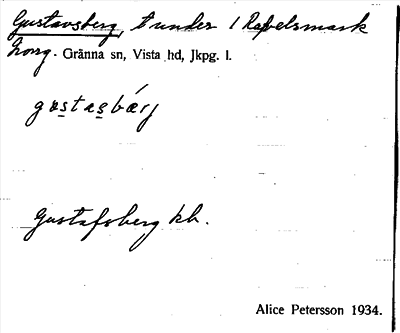 Gustavsberg, t under 1 Rapelsmark
Norg. Gränna sn, Vista hd, Jkpg. l.
gɷstasbárj
Gustafsberg kh.
Alice Petersson 1934.